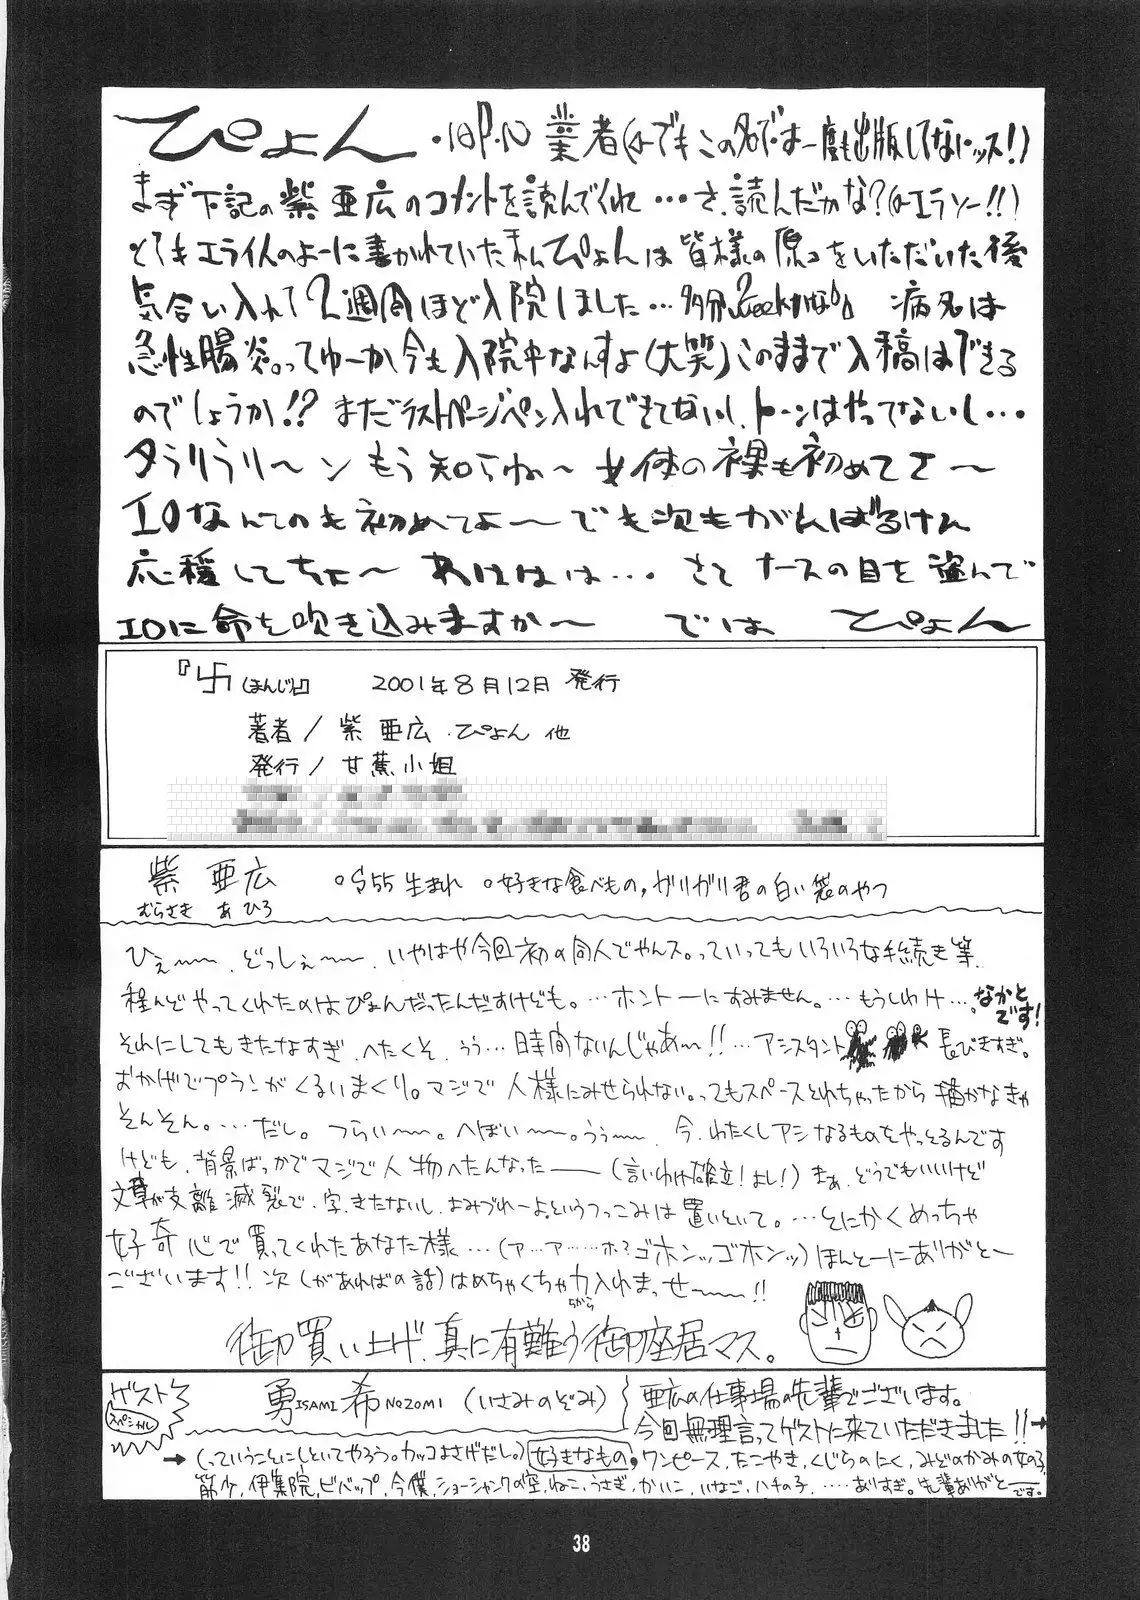 ぴょん
業者(←でもこの名では一度も出版してないッス!)
まず下記の紫亜広のコメントを読んでくれ…さ、読んだかな?(←エラソー!!)
とてもエライ人のよーに書かれていた私ぴょんは皆様の原コをいただいた後
気合い入れて2週間ほど入院しました…多分 病名は
急性腸炎。ってゆーか今も入院中なんすよ(大笑)このままで入稿はできる
のでしょうか!? まだラストページペン入れできてないし、トーンはやってないし…
タラリラリ〜ン もう知らね〜 女体の裸も初めてさ〜
エロなんてのも初めてよ〜 でも次もがんばるけん
応種してちょ〜 あははは… さて ナースの目を盗んで
エロに命を吹き込みますか〜 では ぴょん
『卐(まんじ)』 2001年8月12日 発行
著者/紫 亜広・ぴょん 他
発行/甘蕉小姐
紫 亜広 ○S55生まれ ○好きな食べもの,ガリガリ君の白い袋のやつ
むらさき あひろ
ひぇ〜〜、どっしぇ〜〜、いやはや今回初の同人でやんス。っていってもいろいろな手続き等、
程んどやってくれたのはぴょんだったんだすけども。…ホントーにすみません。…もうしわけ…なかとです!
それにしてもきたなすぎ、へたくそ、うぅ…時間ないんじゃあ〜!!…アシスタント 長びきすぎ。
おかげでプランがくるいまくり。マジで人様にみせられない。ってもスペースとれちゃったから描かなきゃ
そんそん。…だし。つらい〜〜。へぼい〜〜。うぅ〜〜、今、わたくしアシなるものをやっとるんです
けども、背景ばっかでマジで人物へたんなった——(言いわけ確立!よし!)まぁ、どうでもいいけど
文章が支離滅裂で、字、きたないし、よみづれーよ。というつっこみは置いといて。…とにかくめっちゃ
好奇心で買ってくれたあなた様…(ア…ア……ホ?ゴホンッッゴホンッ)ほんとーにありがとー
ございます!!次(があればの話)はめちゃくちゃ力入れまっせ〜〜!!
ちから
御買い上げ、真に有難う御座居マス。
ゲスト スペシャル 勇ISAMI 希NOZOMI (いさみのぞみ) 亜広の仕事場の先輩でございます。
今回無理言ってゲストに来ていただきました!!→
→(っていうことにしといてやろう。カッコよさげだし。)好きなもの,ワンピース、たこやき、くじらのにく、みどりのかみの女の子、
筋少、伊集院、ビバップ、今僕、ショーシャンクの空、ねこ、うさぎ、かいこ、いなご、ハチの子、……ありすぎ。先輩ありがとーです。
38